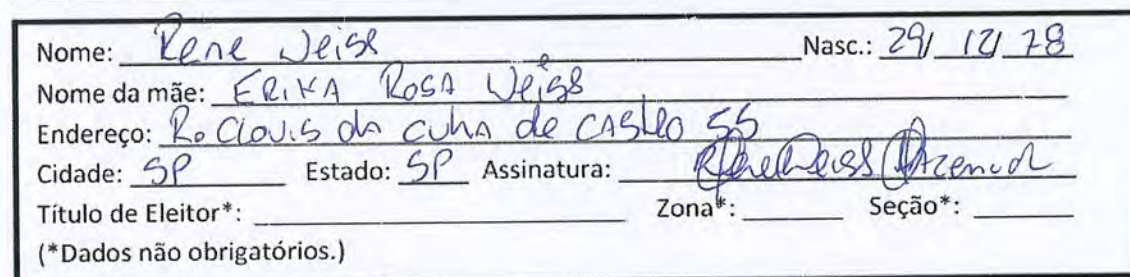 Nome: Rene Weiss Nasc.: 29/ 12/ 78
Nome da mãe: ERIKA ROSA Weiss
Endereço: R. Clovis da cuha de CASTLO 55
Cidade: SP Estado: SP Assinatura: Rene Weiss
Título de Eleitor*: Zona*: Seção*:
(*Dados não obrigatórios.)